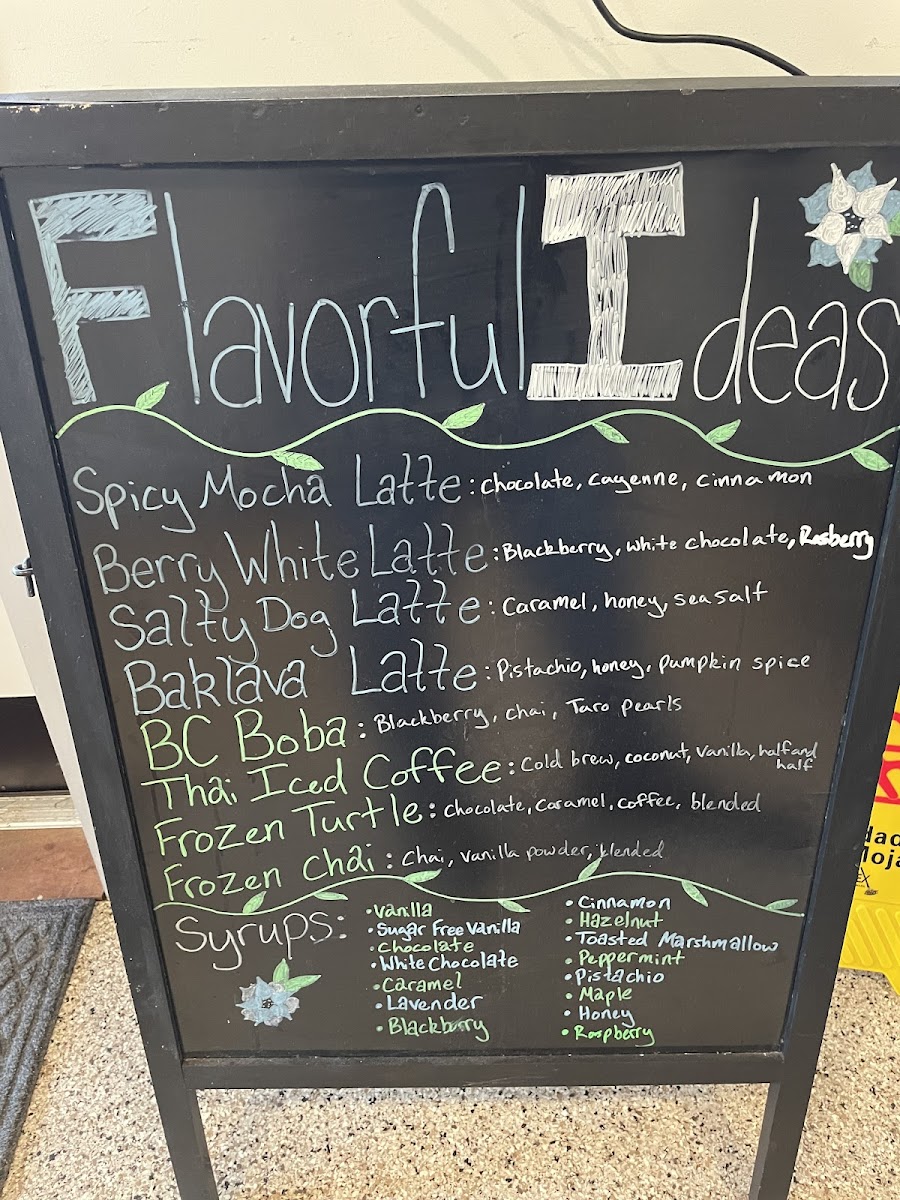 Flavorful Ideas
Spicy Mocha Latte: chocolate, cayenne, cinnamon
Berry White Latte: Blackberry, white chocolate, Rasberry
Salty Dog Latte: Caramel, honey, sea salt
Baklava Latte: Pistachio, honey, pumpkin spice
BC Boba: Blackberry, chai, Taro pearls
Thai Iced Coffee: Cold brew, coconut, vanilla, half and
half
Frozen Turtle: chocolate, caramel, coffee, blended
Frozen Chai: Chai, vanilla powder, blended
Syrups:
• Vanilla
• Sugar Free Vanilla
• Chocolate
• White Chocolate
• Caramel
• Lavender
• Blackberry
• Cinnamon
• Hazelnut
• Toasted Marshmallow
• Peppermint
• Pistachio
• Maple
• Honey
• Raspberry